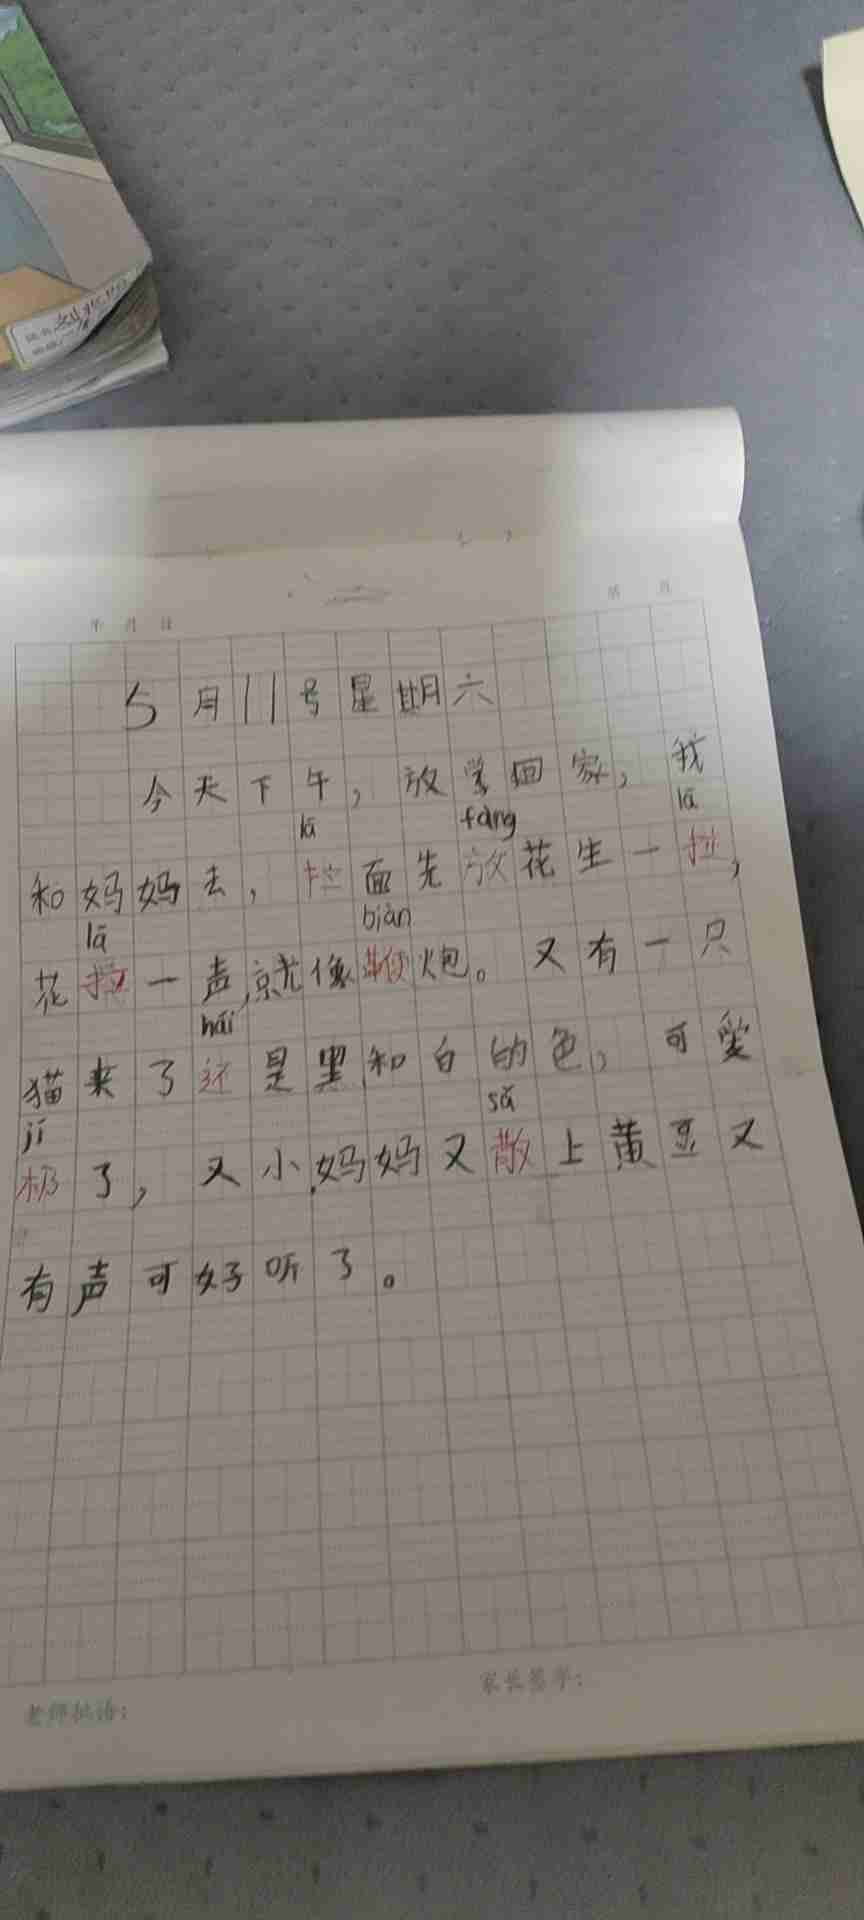 年 月 日
星期
5月11号星期六
今天下午，放学回家，我
lā fàng lā
和妈妈去，拉面先放花生一拉，
lā biàn
花拉一声，就像鞭炮。又有一只
hái
猫来了还是黑和白的色，可爱
jí sǎ
极了，又小，妈妈又散上黄豆又
有声可好听了。
老师批语：
家长签字：